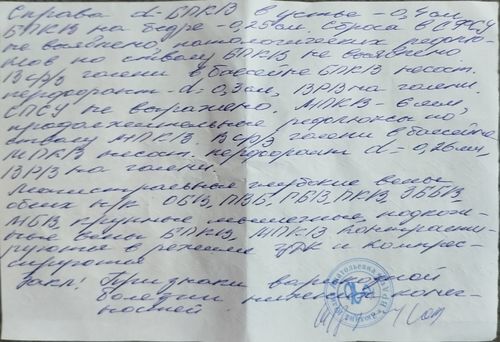 Справа d-БПКВ в устье - 0,4см
БПКВ на бедре - 0,25см. Сброса в СФСУ
не выявлено, патологических рефлюк-
сов по стволу БПКВ не выявлено
В ср/3 голени в бассейне БПКВ несост.
перфорант d- 0,3см, ВРВ на голени.
СПСУ не выражено. МПКВ - 6мм,
продолжительные рефлюксы по
стволу МПКВ. В ср/3 голени в бассейне
МПКВ несост. перфорант d- 0,26см,
ВРВ на голени.
Магистральные глубокие вены
обеих н/к ОБВ, ПБВ, ГБВ, ПКВ, ЗББВ,
МБВ, суральные мышечные, подкож-
ные вены БПКВ, МПКВ контрасти-
руются в режиме ЦДК и компрес-
сируются
Закл! Признаки варикозной
болезни нижних конеч-
ностей.
ВРАЧ